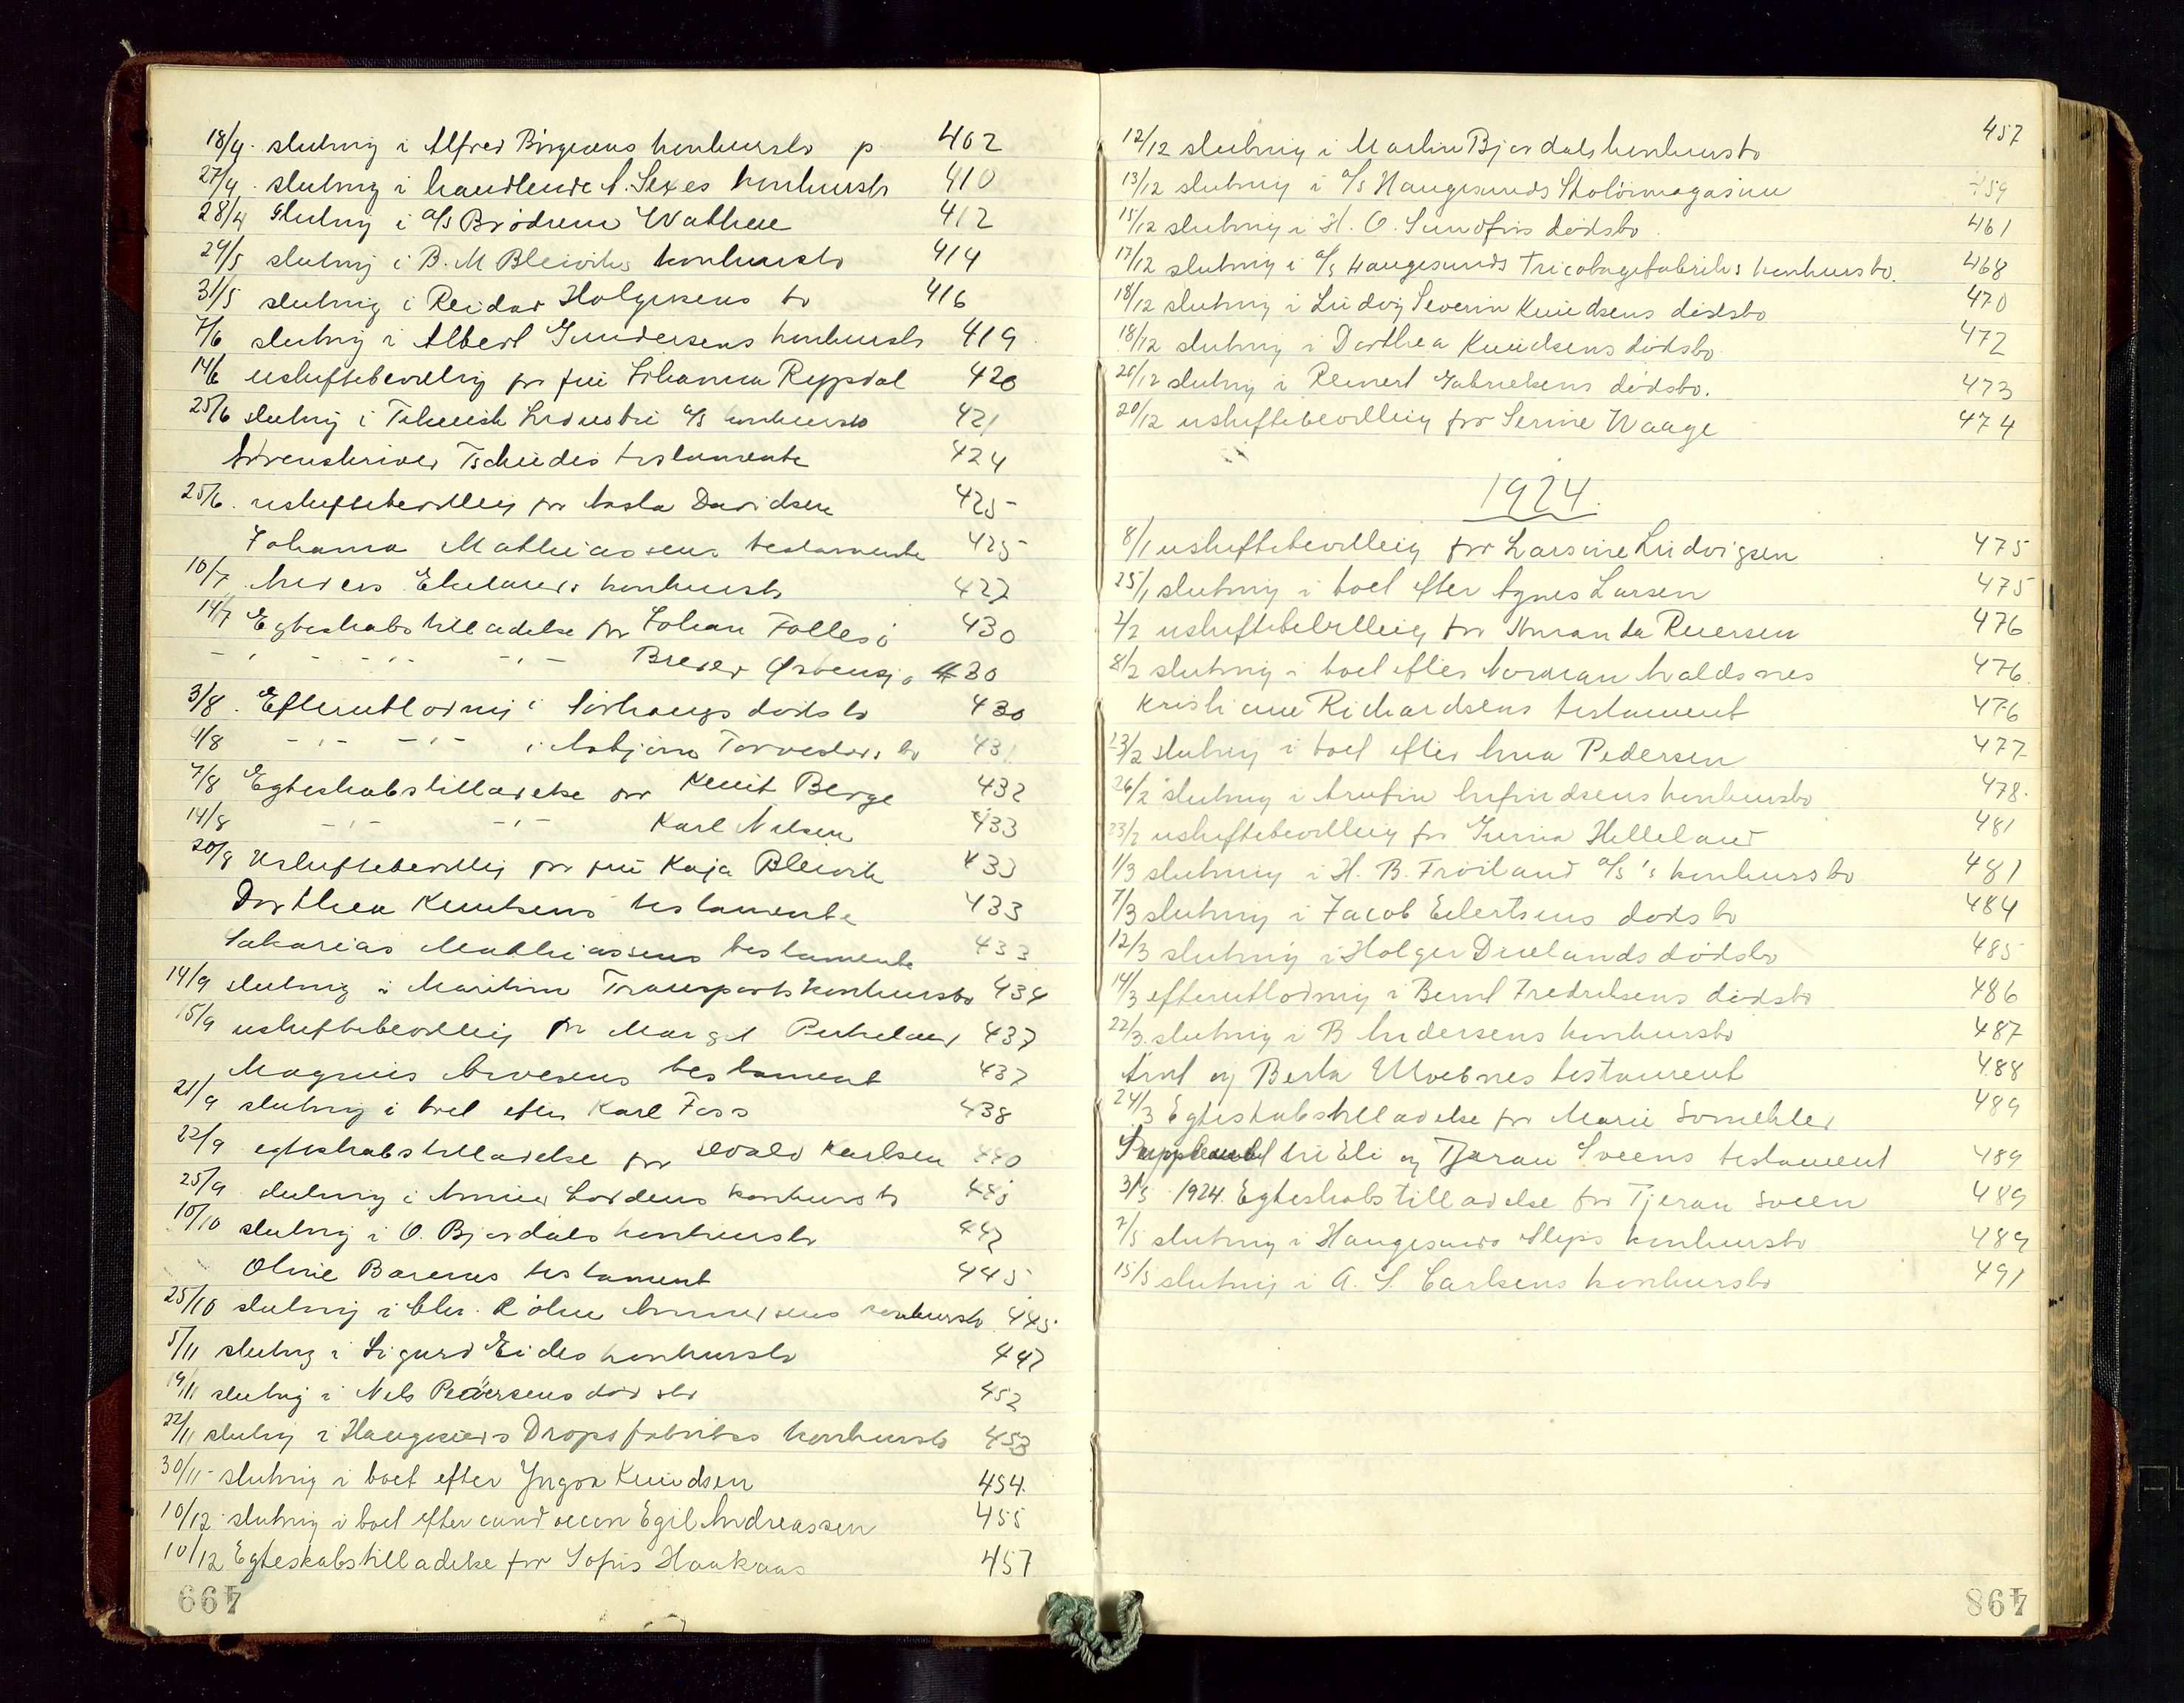 18/4. slutning i Alfred Birgersens konkursbo p 402
27/4. slutning i handlende A. Sexes konkursbo 410
28/4 Slutning i a/s Brødrene Wathne 412
24/5 slutning i B. M Bleiviks konkursbo 414
31/5 slutning i Reidar Holgersens bo 416
7/6 slutning i Albert Gundersens konkursbo 419
14/6 uskiftebevilling for fru Johanna Rypdal 420
25/6 slutning i Teknisk Industri a/s konkursbo 421
Sorenskriver Tschudis testamente 424
25/6. uskiftebevilling for Aasta Davidsen 425
Johanna Mathiassens testamente 425
10/7 Anders konkursbo 427
14/7 Egteskabstilladelse for Johan Følløsø 430
- " - - " - - " - Breder 430
3/8. Efterutlodning i dødsbo 430
4/8 - " - - " - i Asbjørn Torvestads bo 431
7/8 Egteskabstilladelse for Knut Berge 432
14/8 - " - - " - Karl Nilsen 433
20/8 Uskiftebevilling for fru Kaja Bleivik 433
Dorthea Knutsens testamente 433
Sakarias Mathiassens testamente 433
14/9 slutning i Maritim Transports konkursbo 434
15/9 uskiftebevilling for Margit 437
Magnus Arvesens testament 437
21/9 slutning i boet efter Karl Foss 438
22/9 egteskabstilladelse for Karlsen 440
25/9. slutning i konkursbo
10/10 slutning i O. Bjordals konkursbo 442
Oline Barenes testament 445
25/10 slutning i Chr. Amundsens konkursbo 445
5/11 slutning i Sigurd Eides konkursbo 447
14/11 slutning i Nils Pedersens dødsbo 452
22/11 slutning i Haugesunds Dropsfabriks konkursbo 453
30/11 slutning i boet efter Yngva Knudsen 454.
10/12 slutning i boet efter cand oecon Egil Andreassen 455
10/12 Egteskabstilladelse for Sofus Haakaas 457
499
12/12 slutning i Martin Bjordals konkursbo 457
13/12 slutning i a/s Haugesunds Skotøimagasin 459
15/12 slutning i H. O. Sundførs dødsbo. 461
17/12 slutning i a/s Haugesunds Tricotagefabriks konkursbo. 468
18/12 slutning i Ludvig Severin Knudsens dødsbo 470
18/12 slutning i Dorthea Knudsens dødsbo. 472
20/12 slutning i Reinert Gabrielsens dødsbo. 473
20/12 uskiftebevilling for Serine Waage 474
1924.
8/1 uskiftebevilling for Larsine Ludvigsen 475
25/1 slutning i boet efter Agnes Larsen 475
2/2 uskiftebevilling for Amanda Reiersen 476
8/2 slutning i boet efter Norman Avaldsnes 476
Kristiane Richardsens testament 476
23/2 slutning i boet efter Anna Pedersen 477
26/2 slutning i Arnfin Arnfindsens konkursbo 478.
23/2 uskiftebevilling for Gurina Helleland 481
1/3 slutning i H. B. Frøiland a/s 's konkursbo 481
7/3 slutning i Jacob Eilertsens dødsbo 484
12/3 slutning i Holger Duelands dødsbo 485
14/3 efterutlodning i Bernt Fredriksens dødsbo 486
22/3. slutning i B Andersens konkursbo 487
Arnt og Berta Ulvesnes testament 488
24/3 Egteskabstilladelse for Marie 489
Supplement til Eli og Tjeran Sveens testament 489
3/5 1924. Egteskabstilladelse for Tjeran Sveen 489
7/5 slutning i Haugesunds Slips konkursbo 489
15/5 slutning i A. S. Carlsens konkursbo 491
498